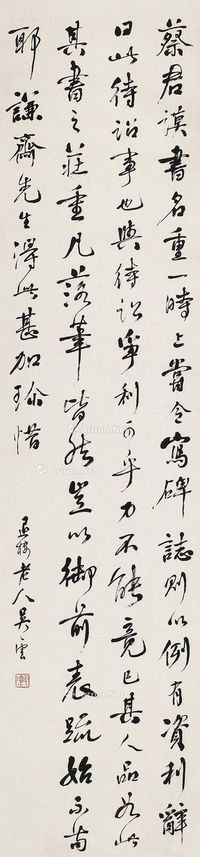 蔡君謨書名重一時上嘗令寫碑誌則以例有資利辭
曰此待詔事也與待詔爭利可乎力不能竟已其人品如此
其書之莊重凡落筆皆然豈以御前表疏始不苟
耶謙齋先生得此甚加珍惜
退樓老人吳雲